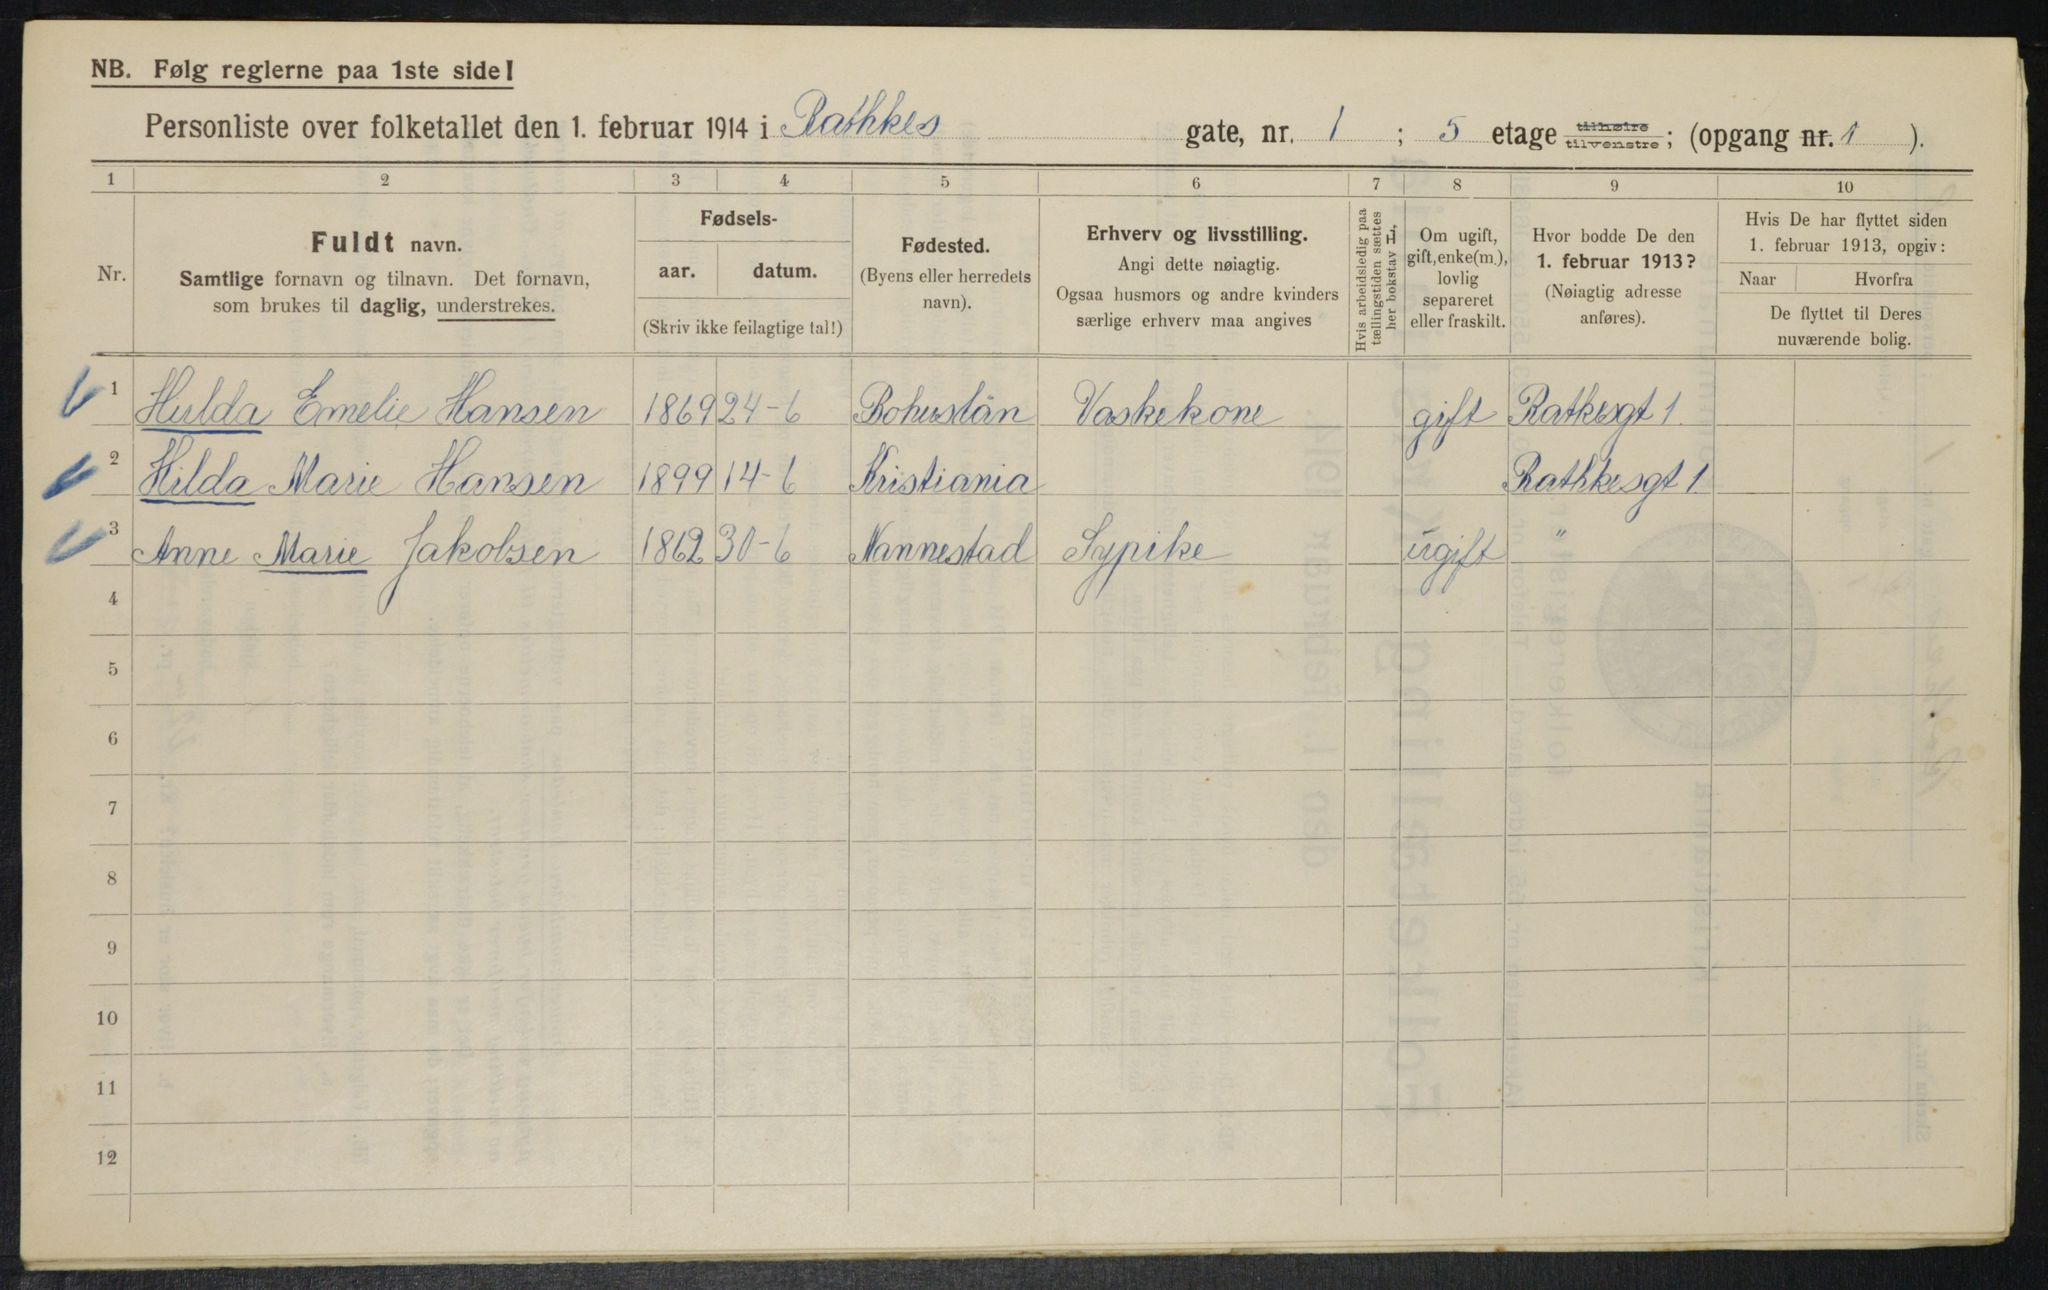 NB. Følg reglerne paa 1ste side!
Personliste over folketallet den 1. februar 1914 i Rathkes gate, nr. 1 ; 5 etage tilhøire tilvenstre ; (opgang nr. 1 ).
1 2 3 4 5 6 7 8 9 10
Nr.
Fuldt navn.
Samtlige fornavn og tilnavn. Det fornavn,
som brukes til daglig, understrekes.
Fødsels-
aar. datum.
(Skriv ikke feilagtige tal!)
Fødested.
(Byens eller herredets
navn).
Erhverv og livsstilling.
Angi dette nøiagtig.
Ogsaa husmors og andre kvinders
særlige erhverv maa angives
Hvis arbeidsledig paa
tællingstiden sættes
her bokstav L.
Om ugift,
gift, enke(m.),
lovlig
separeret
eller fraskilt.
Hvor bodde De den
1. februar 1913?
(Nøiagtig adresse
anføres).
Hvis De har flyttet siden
1. februar 1913, opgiv:
Naar Hvorfra
De flyttet til Deres
nuværende bolig.
1 Hulda Emelie Hansen 1869 24-6 Bohuslän Vaskekone gift Ratkesgt 1.
2 Hilda Marie Hansen 1899 14-6 Kristiania Rathkesgt 1.
3 Anne Marie Jakobsen 1862 30-6 Nannestad Sypike ugift "
4
5
6
7
8
9
10
11
12